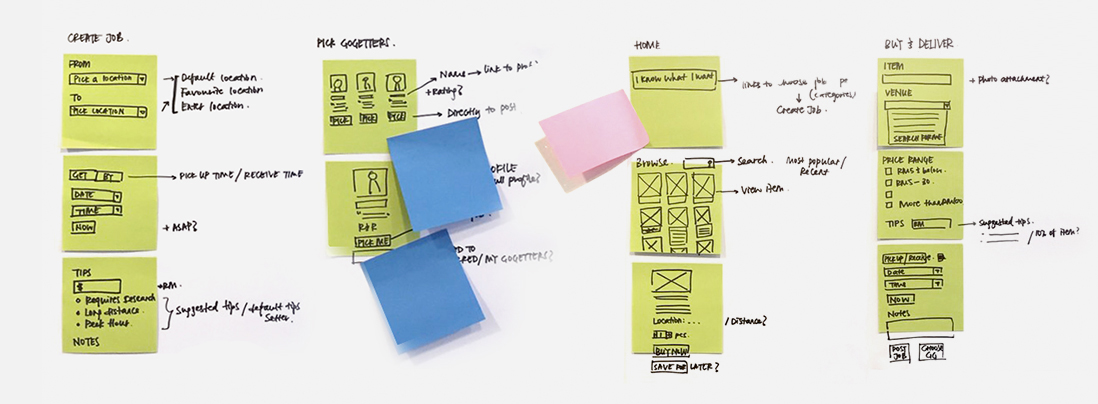 CREATE JOB.
FROM
PICK A LOCATION
TO
PICK LOCATION
Default location.
Favourite location
Enter location.
GET BY
DATE
TIME
NOW
PICK UP TIME / RECEIVE TIME
+ ASAP?
TIPS
$
+RM.
Requires Research
Long distance.
Peak Hour.
NOTES
Suggested tips / default tips
Setter.
PICK GOGETTERS.
PICK PICK PICK
Name → link to
+Rating?
Directly to post
PICK ME
profile?
/ MY GOGETTERS?
HOME
I KNOW WHAT I WANT
links to
(categories)
Create Job.
Browse.
Search.
Most popular/
Recent
View item.
Location: ...
/ Distance?
pcs.
BUY NOW
SAVE FOR LATER?
BUY & DELIVER
ITEM
VENUE
SEARCH FOR ME
+ Photo attachment?
PRICE RANGE
RM5 & below.
RM5 – 30.
More than
TIPS RM
Suggested tips.
/ 10% of item?
PICK UP / Receive.
Date
Time
NOW
Notes
POST JOB
CHOOSE GG